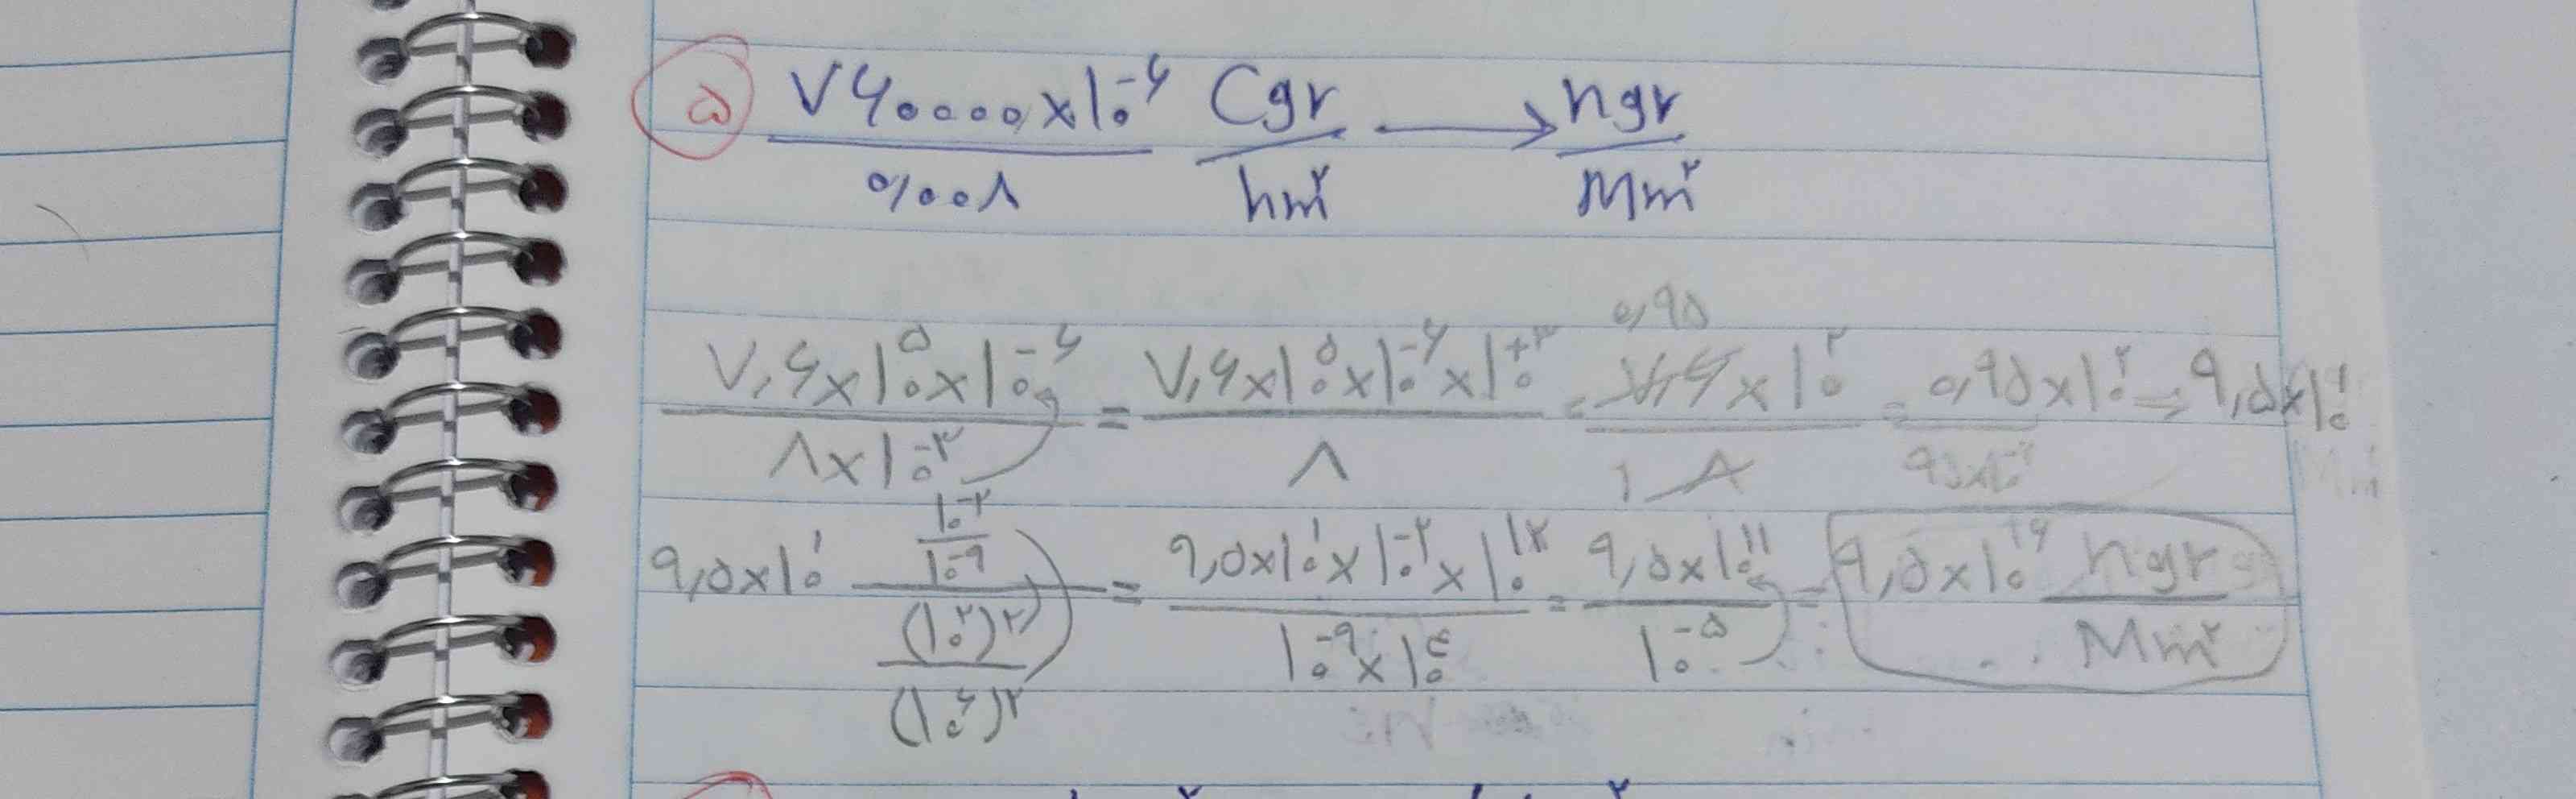 ۵ ۷۶۰۰۰۰×۱۰^-۶ / ۰/۰۰۸ Cgr/hm^۲ → ngr/Mm^۲
۰,۹۵
۷,۶×۱۰^۵×۱۰^-۶ / ۸×۱۰^-۳ = ۷,۶×۱۰^۵×۱۰^-۶×۱۰^+۳ / ۸ = ۷,۶×۱۰^۲ / ۸ ۱ = ۰,۹۵×۱۰^۲ / ۹۵×۱۰^-۲ ⇒ ۹,۵×۱۰^۱
۹,۵×۱۰^۱ (۱۰^-۲/۱۰^-۹) / ((۱۰^۲)^۲/(۱۰^۶)^۲) = ۹,۵×۱۰^۱×۱۰^-۲×۱۰^۱۲ / ۱۰^-۹×۱۰^۴ = ۹,۵×۱۰^۱۱ / ۱۰^-۵ = ۹,۵×۱۰^۱۶ ngr/Mm^۲